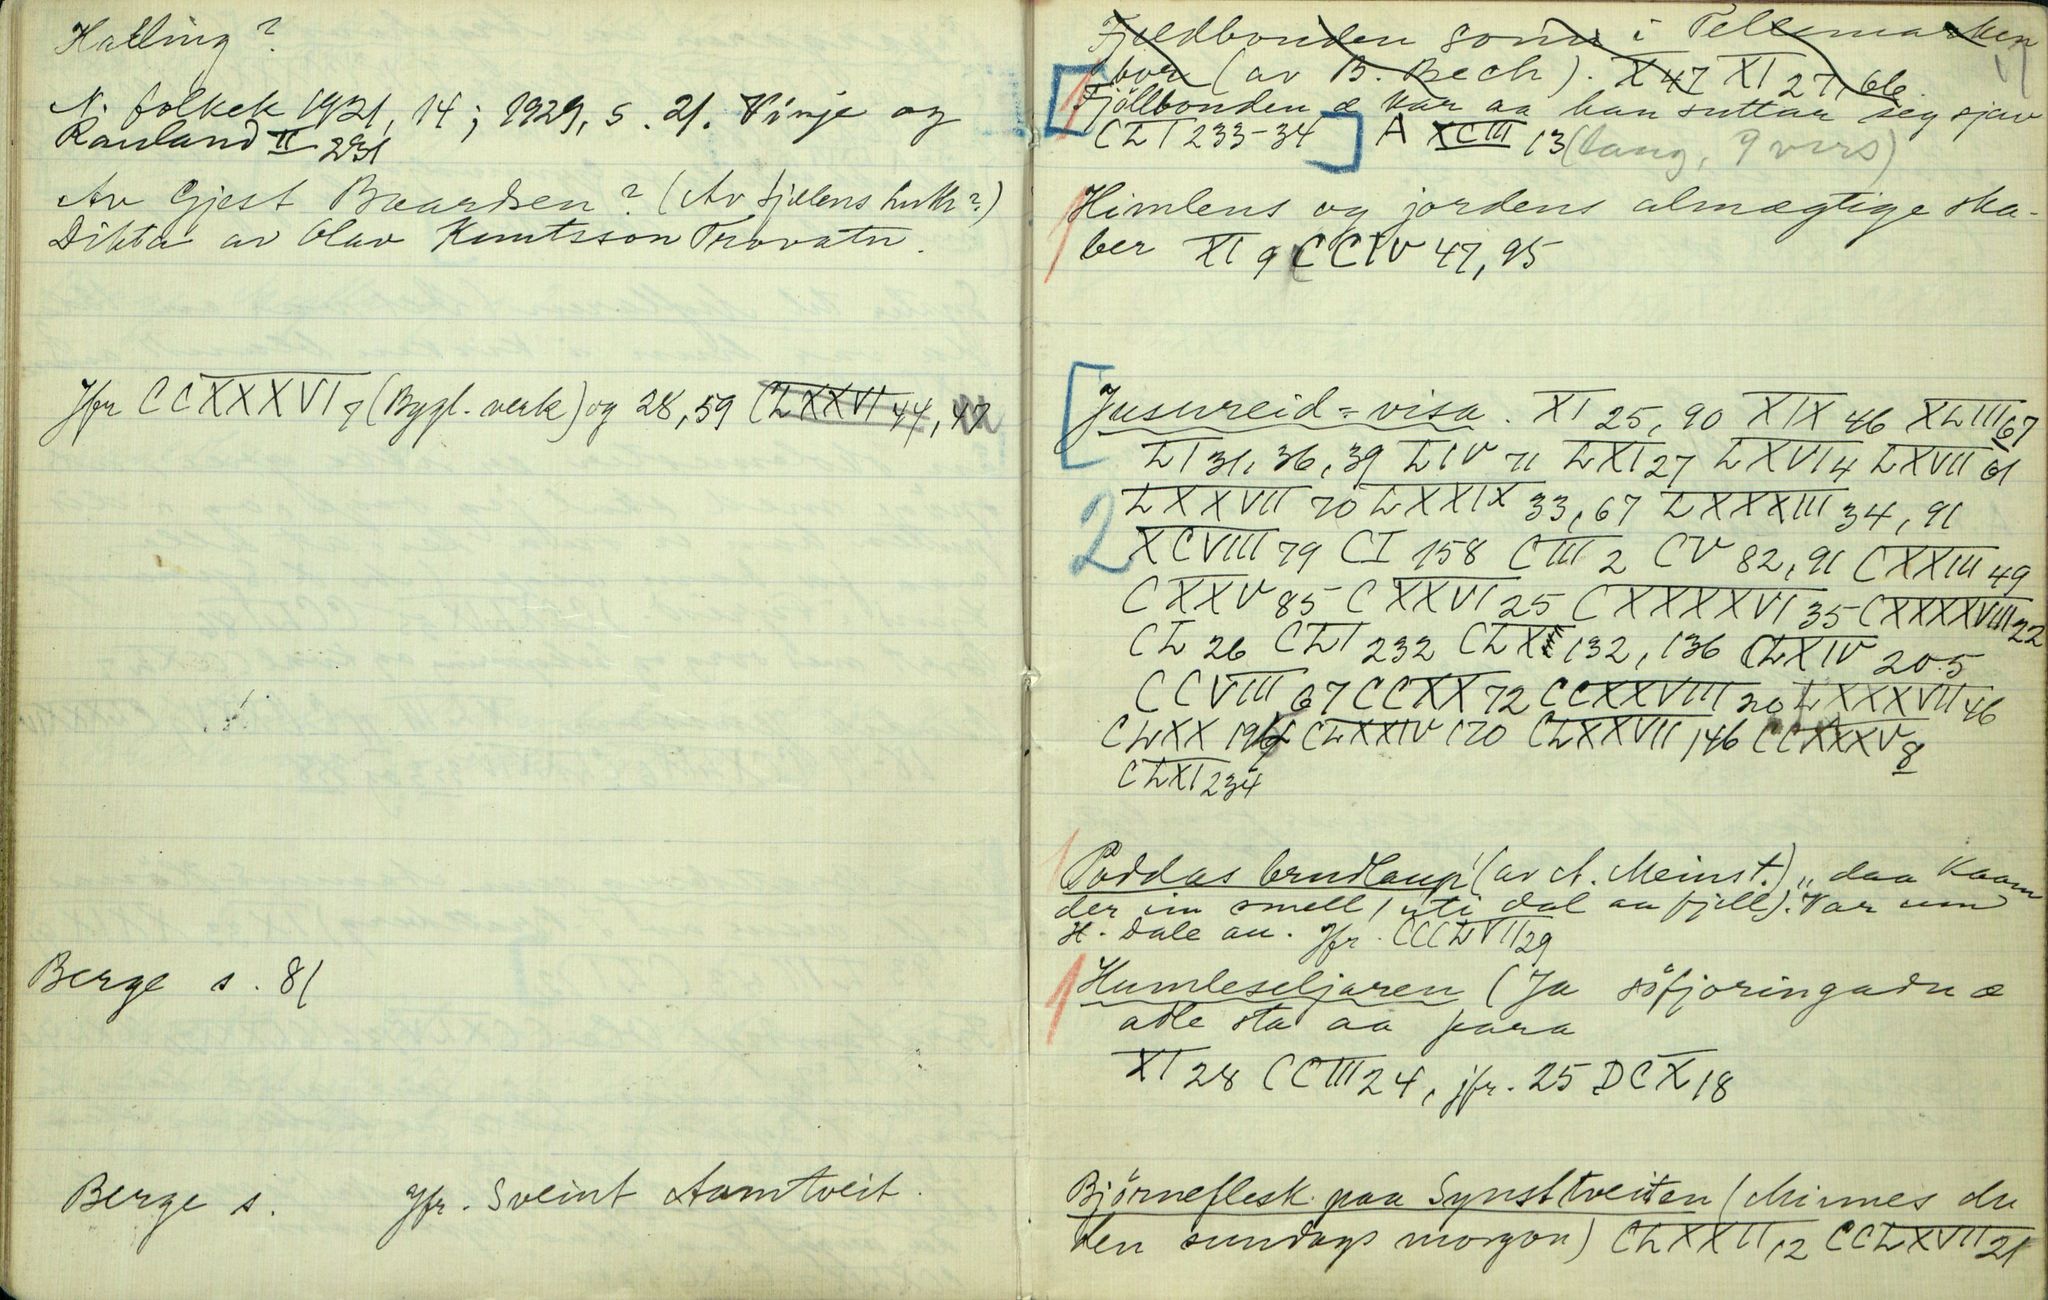 Halling?
N. folkek 1921, 14; 1929, s. 21. Vinje og
Rauland II 231
Av Gjest Baardsen? (Av fjellens hulk?)
Dikta av Olav Knutsson Trovatn.
Jfr CCXXXVI 7 (Bygl. verk) og 28, 59 CLXXVI 44, 47
Berge s. 81
Berge s. Jfr. Sveint Aamtveit.
Fjeldbonden som i Tellemarken
bor (av B. Bech). X 47 XI 27, 66.
Fjöllbonden æ kar aa han suttar seg sjav
CLI 233-34 A XCIII 13 (lang, 9 vers)
Himlens og jordens almægtige ska-
ber XI 9 CCIV 47, 95
Jusureid-visa. XI 25, 90 XIX 46 XLIII 67
LI 31, 36, 39 LIV 71 LXI 27 LXVI 4 LXVII 61
2 LXXVII 70 LXXIX 33, 67 LXXXIII 34, 91
XCVIII 79 CI 158 CIII 2 CV 82, 91 CXXIII 49
CXXV 85 CXXVI 25 CXXXXVI 35 CXXXXVIII 22
CL 26 CLI 232 CLX 132, 136 CLXIV 205
CCVIII 67 CCXX 72 CCXXVIII 20 LXXXVII 46
CLXX 194 CLXXIV 170 CLXXVII 146 CCXXXV 8
CLXI 234
Poddas brudlaup (av A. Meinst.) „daa kaam
der im smell / uti dal aa fjell). Var um
H. Dale au. Jfr. CCCLVII 29
Humleseljaren (Ja söfjoringadn æ
adle sta aa fara
XI 28 CCIII 24, jfr. 25 DCX 18
Björneflesk paa Synsttveiten (Minnes du
den sundags morgon) CLXXII 12 CCLXVII 21